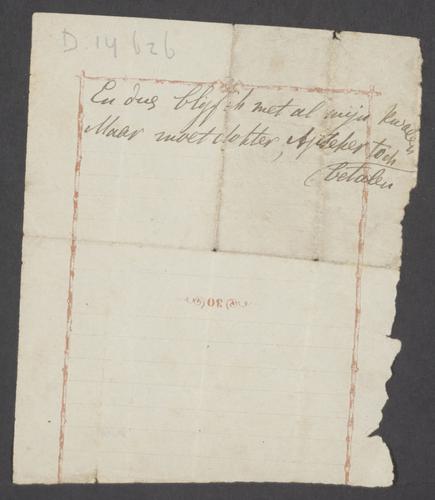 D. 14626
En dus blijf ik met al mijn kwalen
Maar moet dokter, Apteker toch
betalen
30